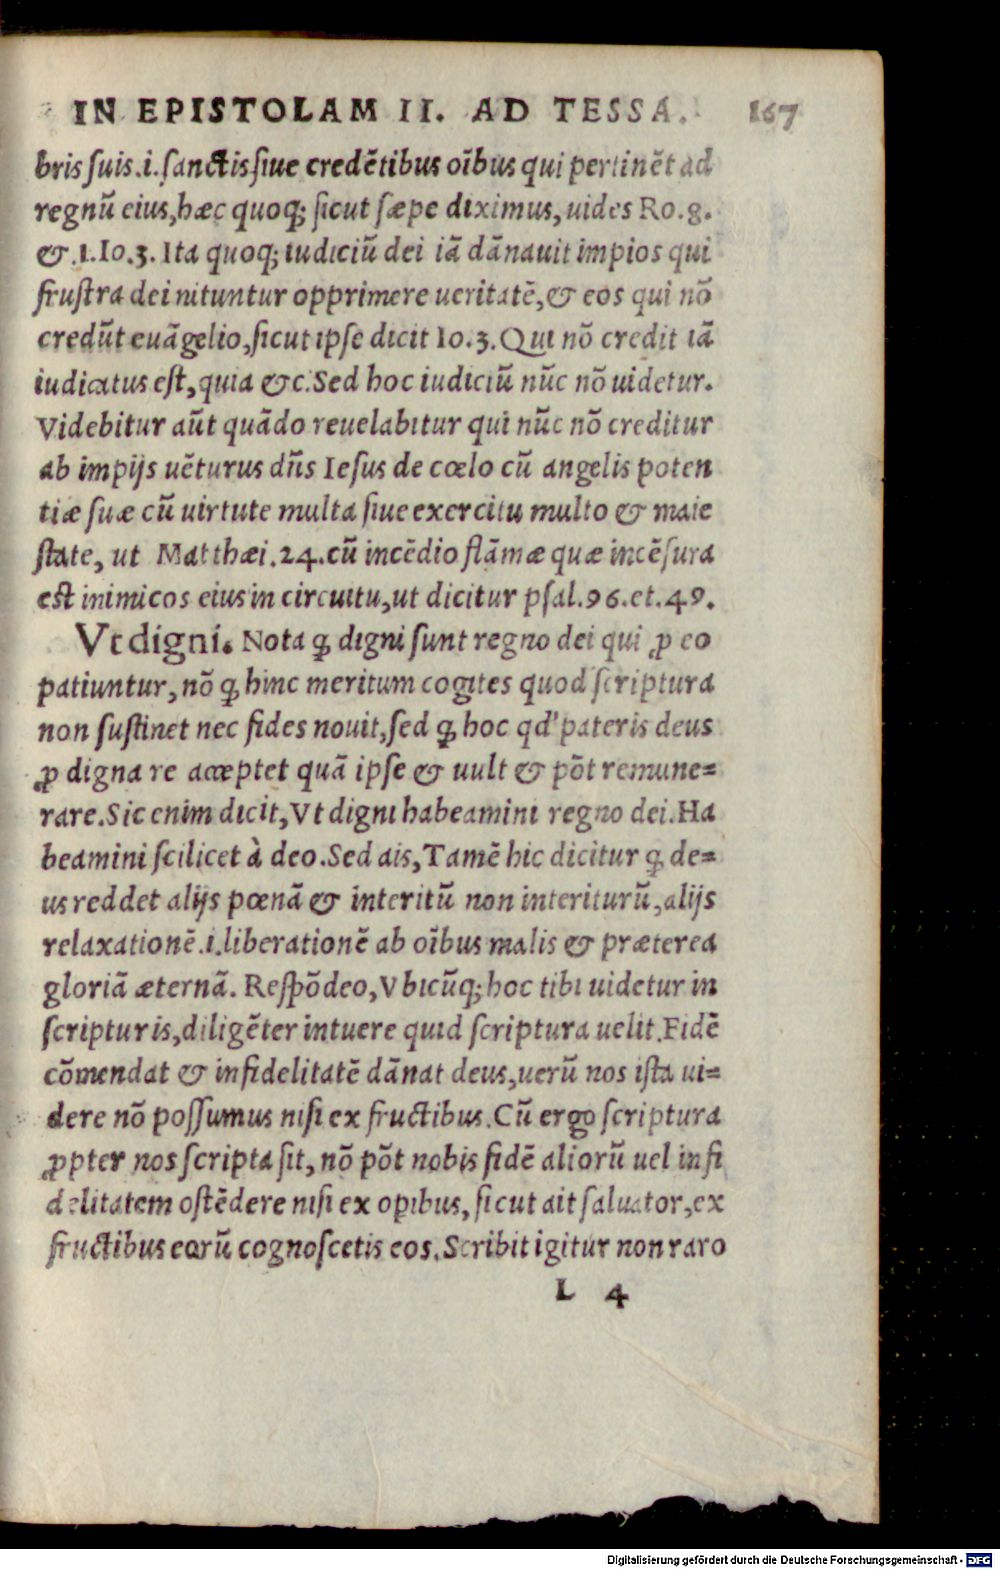 IN EPISTOLAM II. AD TESSA. 167
bris suis.i.sanctis siue credẽtibus oĩbus qui pertinẽt ad
regnũ eius,hæc quoq; sicut sæpe diximus,uides Ro.g.
&.1.Io.3. Ita quoq; iudiciũ dei iã dãnauit impios qui
frustra dei nituntur opprimere ueritatẽ,& eos qui nõ
credũt euãgelio,sicut ipse dicit Io.3.Qui nõ credit iã
iudicatus est,quia &c.Sed hoc iudiciũ nũc nõ uidetur.
Videbitur aũt quãdo reuelabitur qui nũc nõ creditur
ab impijs uẽturus dñs Iesus de cœlo cũ angelis poten
tiæ suæ cũ uirtute multa siue exercitu multo & maie
state, ut Matthæi.24.cũ incẽdio flãmæ quæ incẽsura
est inimicos eius in circuitu,ut dicitur psal.96.et.49.
Vt digni. Nota ꝙ digni sunt regno dei qui ꝓ eo
patiuntur, nõ ꝙ hinc meritum cogites quod scriptura
non sustinet nec fides nouit,sed ꝙ hoc qd' pateris deus
ꝓ digna re acceptet quã ipse & uult & põt remune=
rare.Sic enim dicit,Vt digni habeamini regno dei.Ha
beamini scilicet à deo.Sed ais,Tamẽ hic dicitur ꝙ de=
us reddet alijs pœnã & interitũ non interiturũ,alijs
relaxationẽ.i.liberationẽ ab oĩbus malis & præterea
gloriã æternã. Respõdeo,Vbicũq; hoc tibi uidetur in
scripturis,diligẽter intuere quid scriptura uelit.Fidẽ
cõmendat & infidelitatẽ dãnat deus,uerũ nos ista ui=
dere nõ possumus nisi ex fructibus.Cũ ergo scriptura
ꝓpter nos scripta sit, nõ põt nobis fidẽ aliorũ uel infi
delitatem ostẽdere nisi ex opibus, sicut ait saluator,ex
fructibus eorũ cognoscetis eos.Scribit igitur non raro
L 4
Digitalisierung gefördert durch die Deutsche Forschungsgemeinschaft - DFG